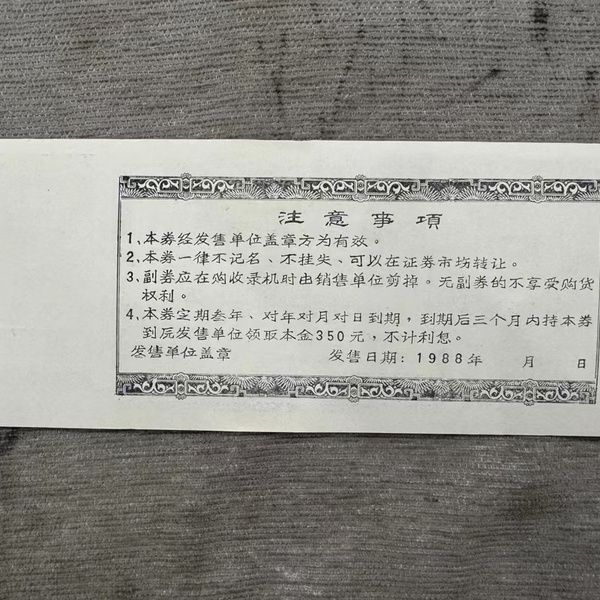 注意事項
1、本券经发售单位盖章方为有效。
2、本券一律不记名、不挂失、可以在证券市坊转让。
3、副券应在购收录机时由销售单位剪掉。无副券的不享受购货
权利。
4、本券定期叁年、对年对月对日到期，到期后三个月内持本券
到原发售单位领取本金350元，不计利息。
发售单位盖章 发售日期：1988年 月 日